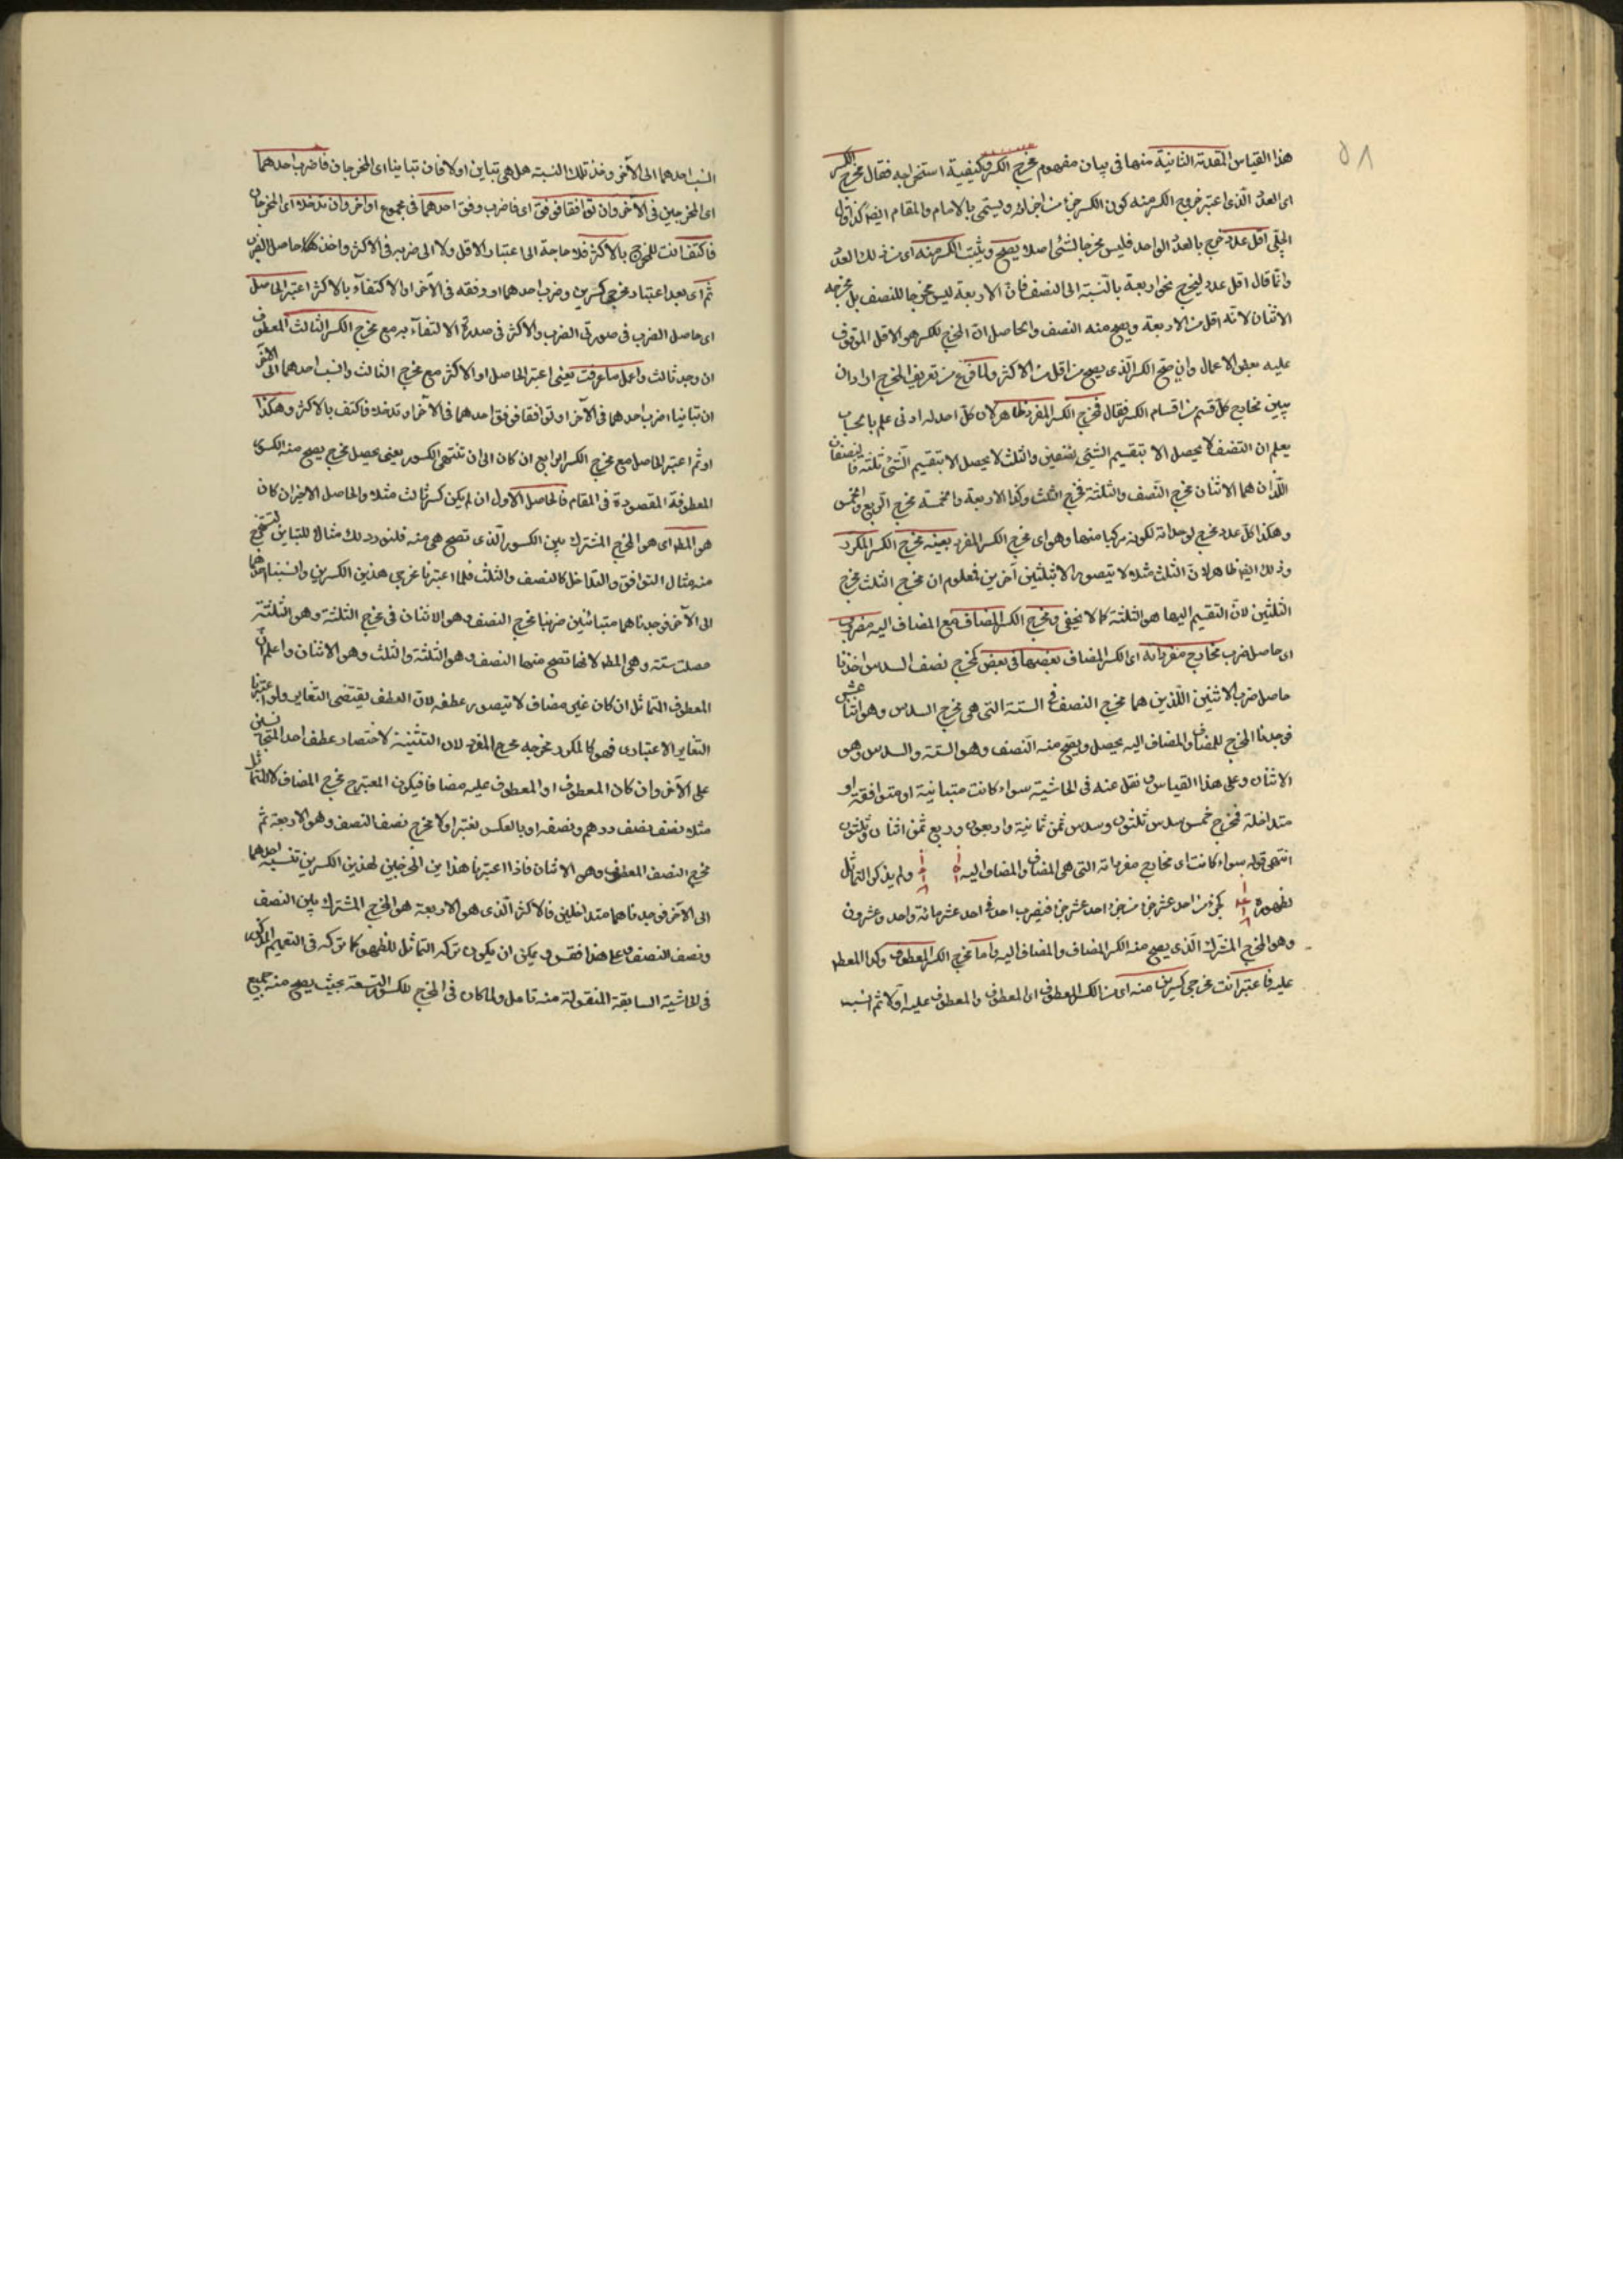 ٥٨
هذا القياس المقدمة الثانية منها فى بيان مفهوم مخرج الكسر وكيفية استخراجه فقال مخرج الكسر
اى العدد الذى اعتبر خروج الكسر منه كون الكسر جزأ من اجزائه ويسمى بالامام والمقام ايضا كذا قال
الجلبى اقل عدد خرج بالعدد الواحد فليس مخرجا لشئ اصلا يصح ويثبت الكسر منه اى من ذلك العدد
وانما قال اقل عدد ليخرج نحو اربعة بالنسبة الى النصف فان الاربعة ليس مخرجا للنصف بل مخرجه
الاثنان لانه اقل من الاربعة ويصح منه النصف والحاصل ان المخرج للكسر هو الاقل الموقوف
عليه بعض الاعمال وان صح الكسر الذى يصح من اقل من الاكثر ولما فرغ من تعريف المخرج اراد ان
يبين مخارج كل قسم من اقسام الكسر فقال فمخرج الكسر المفرد ظاهر لان كل احد له ادنى علم بالحساب
يعلم ان النصف لا يحصل الا بتقسيم الشئ بنصفين والثلث لا يحصل الا بتقسيم الشئ ثلثة فالنصفان
اللذان هما الاثنان مخرج النصف والثلثة مخرج الثلث وكذا الاربعة والخمسة مخرج الربع والخمس
وهكذا كل عدد مخرج لوحداته لكونه مركبا منها وهو اى مخرج الكسر المفرد بعينه مخرج الكسر المكرر
وذلك ايضا ظاهر لان الثلث مثلا لا يتصور الا بثلثين آخرين فمعلوم ان مخرج الثلث مخرج
الثلثين لان التقسيم اليها هو الثلثة كما لا يخفى ومخرج الكسر المضاف مع المضاف اليه مضروب
اى حاصل ضرب مخارج مفرداته اى الكسر المضاف بعضها فى بعض كمخرج نصف السدس اخذنا
حاصل ضرب الاثنين اللذين هما مخرج النصف فى الستة التى هى مخرج السدس وهو اثنا عشر
فوجدنا المخرج للمضاف والمضاف اليه يحصل ويصح منه النصف وهو الستة والسدس وهو
الاثنان وعلى هذا القياس ونقل عنه فى الحاشية سواء كانت متباينة او متوافقة او
متداخلة فمخرج خمس سدس ثلثون وسدس ثمن ثمانية واربعون وربع ثمن اثنان وثلثون
انتهى قوله سواء كانت اى مخارج مفرداته التى هى المضاف والمضاف اليه ولم يذكر التماثل
لظهوره كجزء من احد عشر جزأ من جزء احد عشر جزأ فنضرب احد فى احد عشر مائة واحد وعشرون
وهو المخرج المشترك الذى يصح منه الكسر المضاف والمضاف اليه واما مخرج الكسر المعطوف وكذا المعطوف
عليه فاعتبر انت مخرجى كسرين منه اى من الكسر المعطوف اى المعطوف والمعطوف عليه اولا ثم انسب
انسب احدهما الى الآخر وخذ تلك النسبة هل هى تباين او لا فان تباينا اى المخرجان فاضرب احدهما
اى المخرجين فى الآخر وان توافقا فوفق اى فاضرب وفق احدهما فى مجموع او آخر وان تداخلا اى المخرجان
فاكتف انت للمخرج بالاكثر فلا حاجة الى اعتبار الاقل ولا الى ضربه فى الاكثر واخذ حاصل الضرب
ثم اى بعد اعتبار مخرجى كسرين وضرب احدهما او وفقه فى الآخر او الاكتفاء بالاكثر اعتبر الحاصل
اى حاصل الضرب فى صورتى الضرب والاكثر فى صورة الاكتفاء به مع مخرج الكسر الثالث المعطوف
ان وجد ثالث واعمل ما عرفت يعنى اعتبر الحاصل او الاكثر مع مخرج الثالث وانسب احدهما الى الآخر
ان تباينا اضرب احدهما فى الآخر او توافقا فوفق احدهما فى الآخر او تداخلا فاكتف بالاكثر وهكذا
او ثم اعتبر الحاصل مع مخرج الكسر الرابع ان كان الى ان تنتهى الكسور يعنى يحصل مخرج يصح منه الكسور
المعطوفة المقصودة فى المقام فالحاصل الاول ان لم يكن كسر ثالث مثلا والحاصل الاخير ان كان
هو المط اى هو المخرج المشترك بين الكسور الذى تصح هى منه فلنورد لك مثالا للتباين لتستخرج
منه مثال التوافق والتداخل كالنصف والثلث فلما اعتبرنا مخرجى هذين الكسرين وانسبنا احدهما
الى الآخر فوجدناهما متباينين ضربنا مخرج النصف وهو الاثنان فى مخرج الثلثة وهو الثلثة
حصلت ستة وهى المط لانها تصح منها النصف وهو الثلثة والثلث وهو الاثنان واعلم ان
المعطوف المتماثل ان كان غير مضاف لا يتصور عطفه لان العطف يقتضى التغاير ولو اعتبرنا
التغاير الاعتبارى فهو كالمكرر مخرجه مخرج المفرد لان التثنية لاختصار عطف احد المتجانسين
على الآخر وان كان المعطوف او المعطوف عليه مضافا فيكون المعتبر مخرج المضاف لا المتماثل
مثلا نصف نصف درهم ونصفه او بالعكس نعتبر اولا مخرج نصف النصف وهو الاربعة ثم
مخرج النصف المعطوف وهو الاثنان فاذا اعتبرنا هذا ين المخرجين لهذين الكسرين ننسب احدهما
الى الآخر فوجدناهما متداخلين فالاكثر الذى هو الاربعة هو المخرج المشترك بين النصف
ونصف النصف وعلى هذا فقس ويمكن ان يكون تركه التماثل للظهور كما تركه فى التعميم المذكور
فى الحاشية السابقة المنقولة منه تامل ولما كان فى المخرج للكسور التسعة بحيث يصح منه جميع